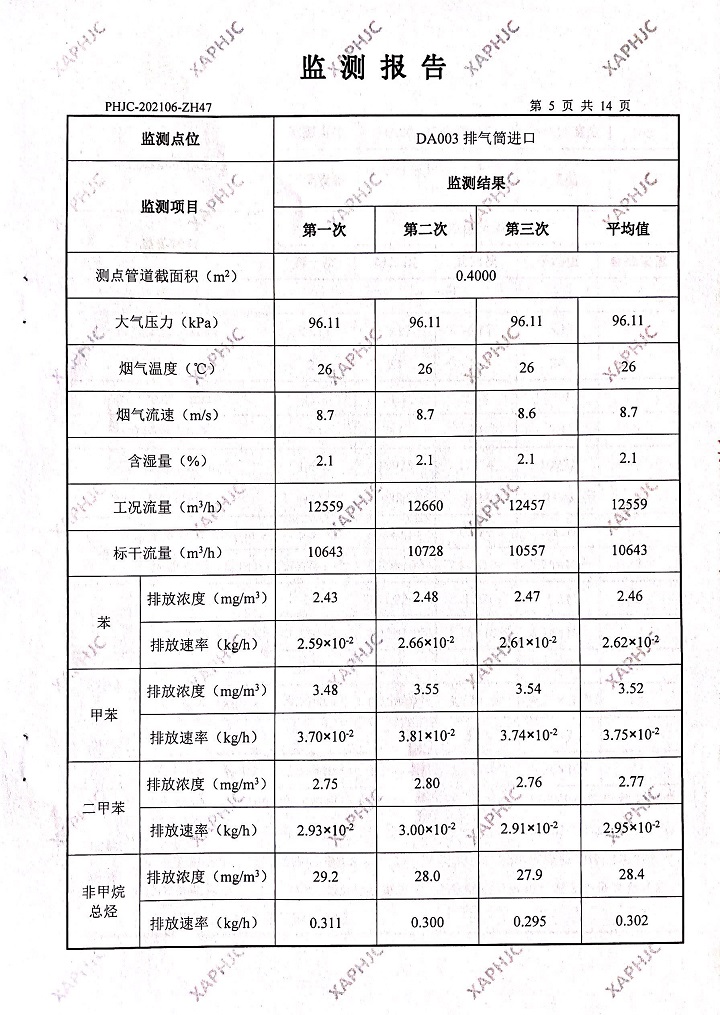 监测报告
PHJC-202106-ZH47 第 5 页 共 14 页
监测点位 DA003 排气筒进口
监测项目 监测结果
第一次 第二次 第三次 平均值
测点管道截面积（m²） 0.4000
大气压力（kPa） 96.11 96.11 96.11 96.11
烟气温度（℃） 26 26 26 26
烟气流速（m/s） 8.7 8.7 8.6 8.7
含湿量（%） 2.1 2.1 2.1 2.1
工况流量（m³/h） 12559 12660 12457 12559
标干流量（m³/h） 10643 10728 10557 10643
苯 排放浓度（mg/m³） 2.43 2.48 2.47 2.46
排放速率（kg/h） 2.59×10⁻² 2.66×10⁻² 2.61×10⁻² 2.62×10⁻²
甲苯 排放浓度（mg/m³） 3.48 3.55 3.54 3.52
排放速率（kg/h） 3.70×10⁻² 3.81×10⁻² 3.74×10⁻² 3.75×10⁻²
二甲苯 排放浓度（mg/m³） 2.75 2.80 2.76 2.77
排放速率（kg/h） 2.93×10⁻² 3.00×10⁻² 2.91×10⁻² 2.95×10⁻²
非甲烷总烃 排放浓度（mg/m³） 29.2 28.0 27.9 28.4
排放速率（kg/h） 0.311 0.300 0.295 0.302
XAPHJC